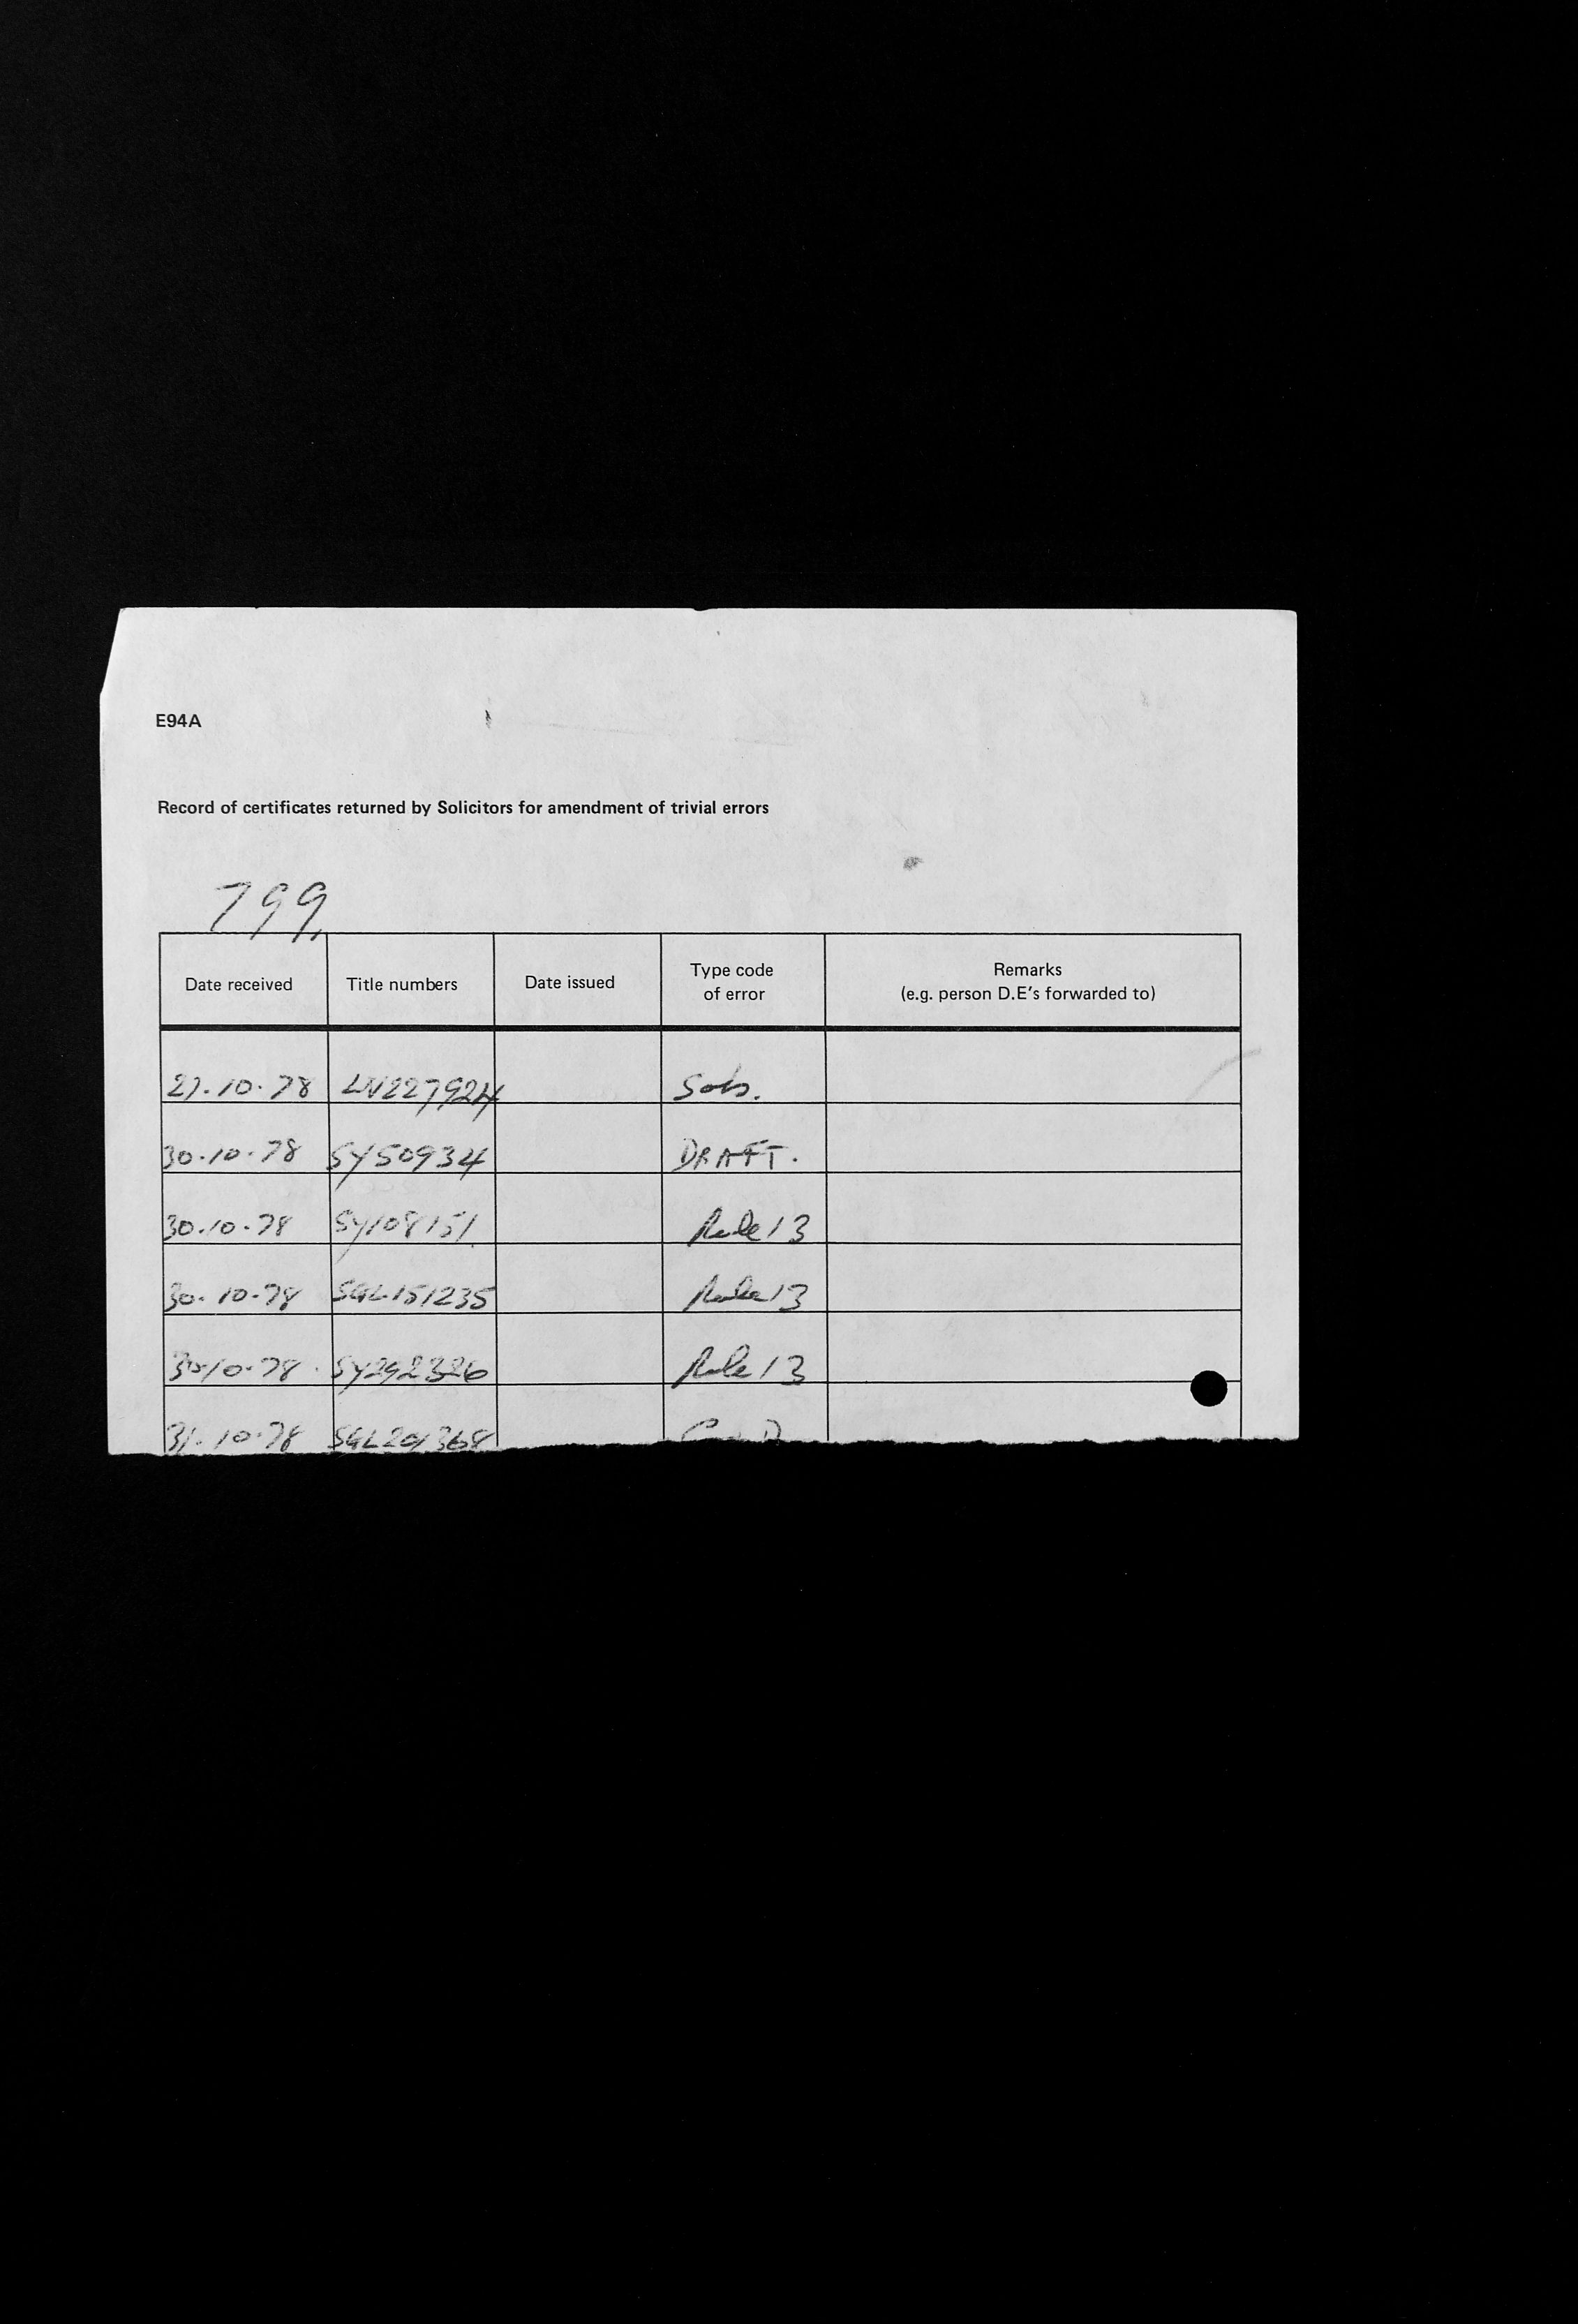 E94A
Record of certificates returned by Solicitors for amendment of trivial errors
799
Date received Title numbers Date issued Type code of error Remarks (e.g. person D.E's forwarded to)
27.10.78 LN227924 Sols.
30.10.78 SY50934 DRAFT.
30.10.78 SY108151 Rule 13
30.10.78 SGL151235 Rule 13
30.10.78 SY292326 Rule 13
31.10.78 SGL201368